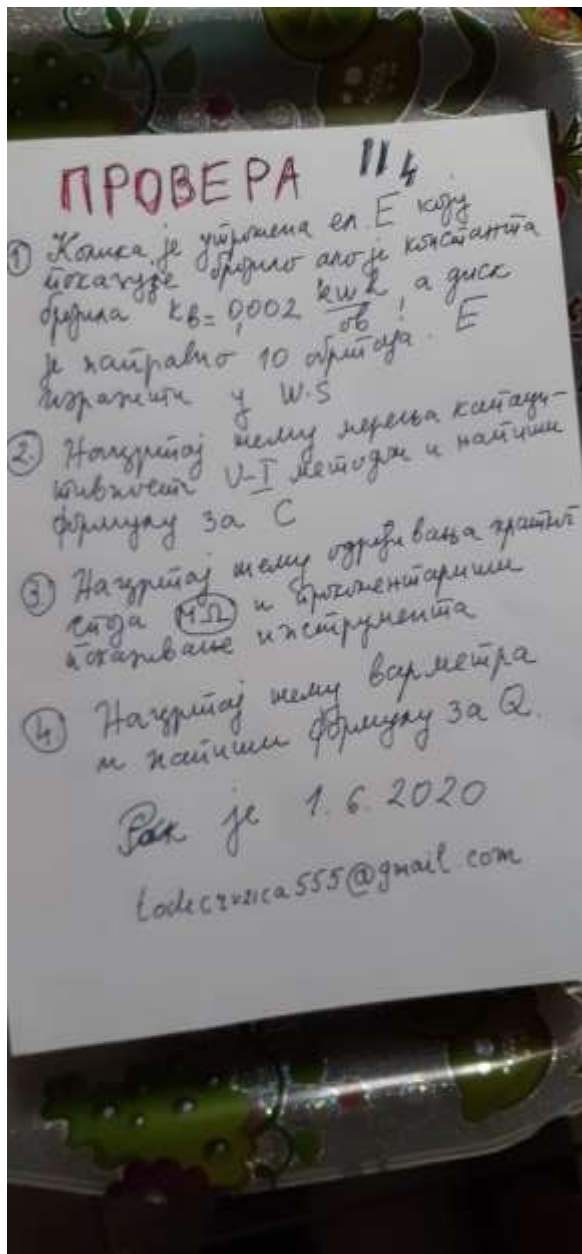 ПРОВЕРА II4
① Колика је утрошена ел. E коју
показује бројило ако је константа
бројила kB= 0,002 kwh/ob, а диск
је направио 10 обртаја. E
изразити у W.S
②. Нацртај шему мерења капаци-
тивности U-I методом и напиши
формулу за C
③ Нацртај шему одређивања кратког
споја MΩ и прокоментариши
показивање инструмента
④ Нацртај шему варметра
и напиши формулу за Q.
Рок је 1.6.2020
@gmail.com